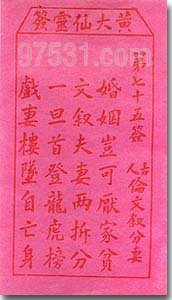 黃大仙靈簽
97531.com
第七十五簽
古人
倫文叙分妻
婚姻豈可厭家貧
文叙夫妻兩拆分
一旦首登龍虎榜
戲車樓墜自亡身